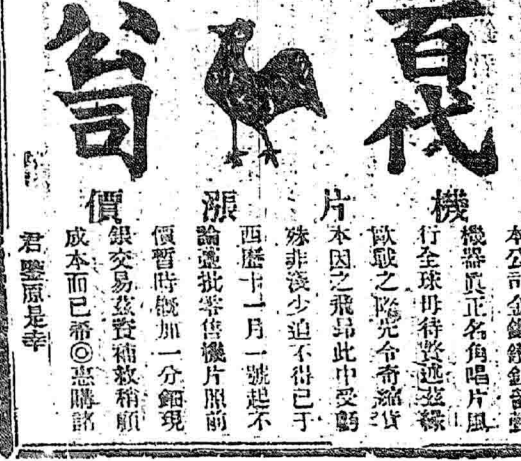 百代
公司
機片漲價
本公司金鋼鑽
機器眞正名角唱片風
行全球毋待贅述茲緣
歐戰之際先令奇縮貨
本因之飛昻此中受虧
殊非淺少迫不得已于
西歷十一月一號起不
論躉批零售機片照前
價暫時概加一分鈿現
銀交易茲資補救稍顧
成本而已希◎惠購諸
君鑒原是幸